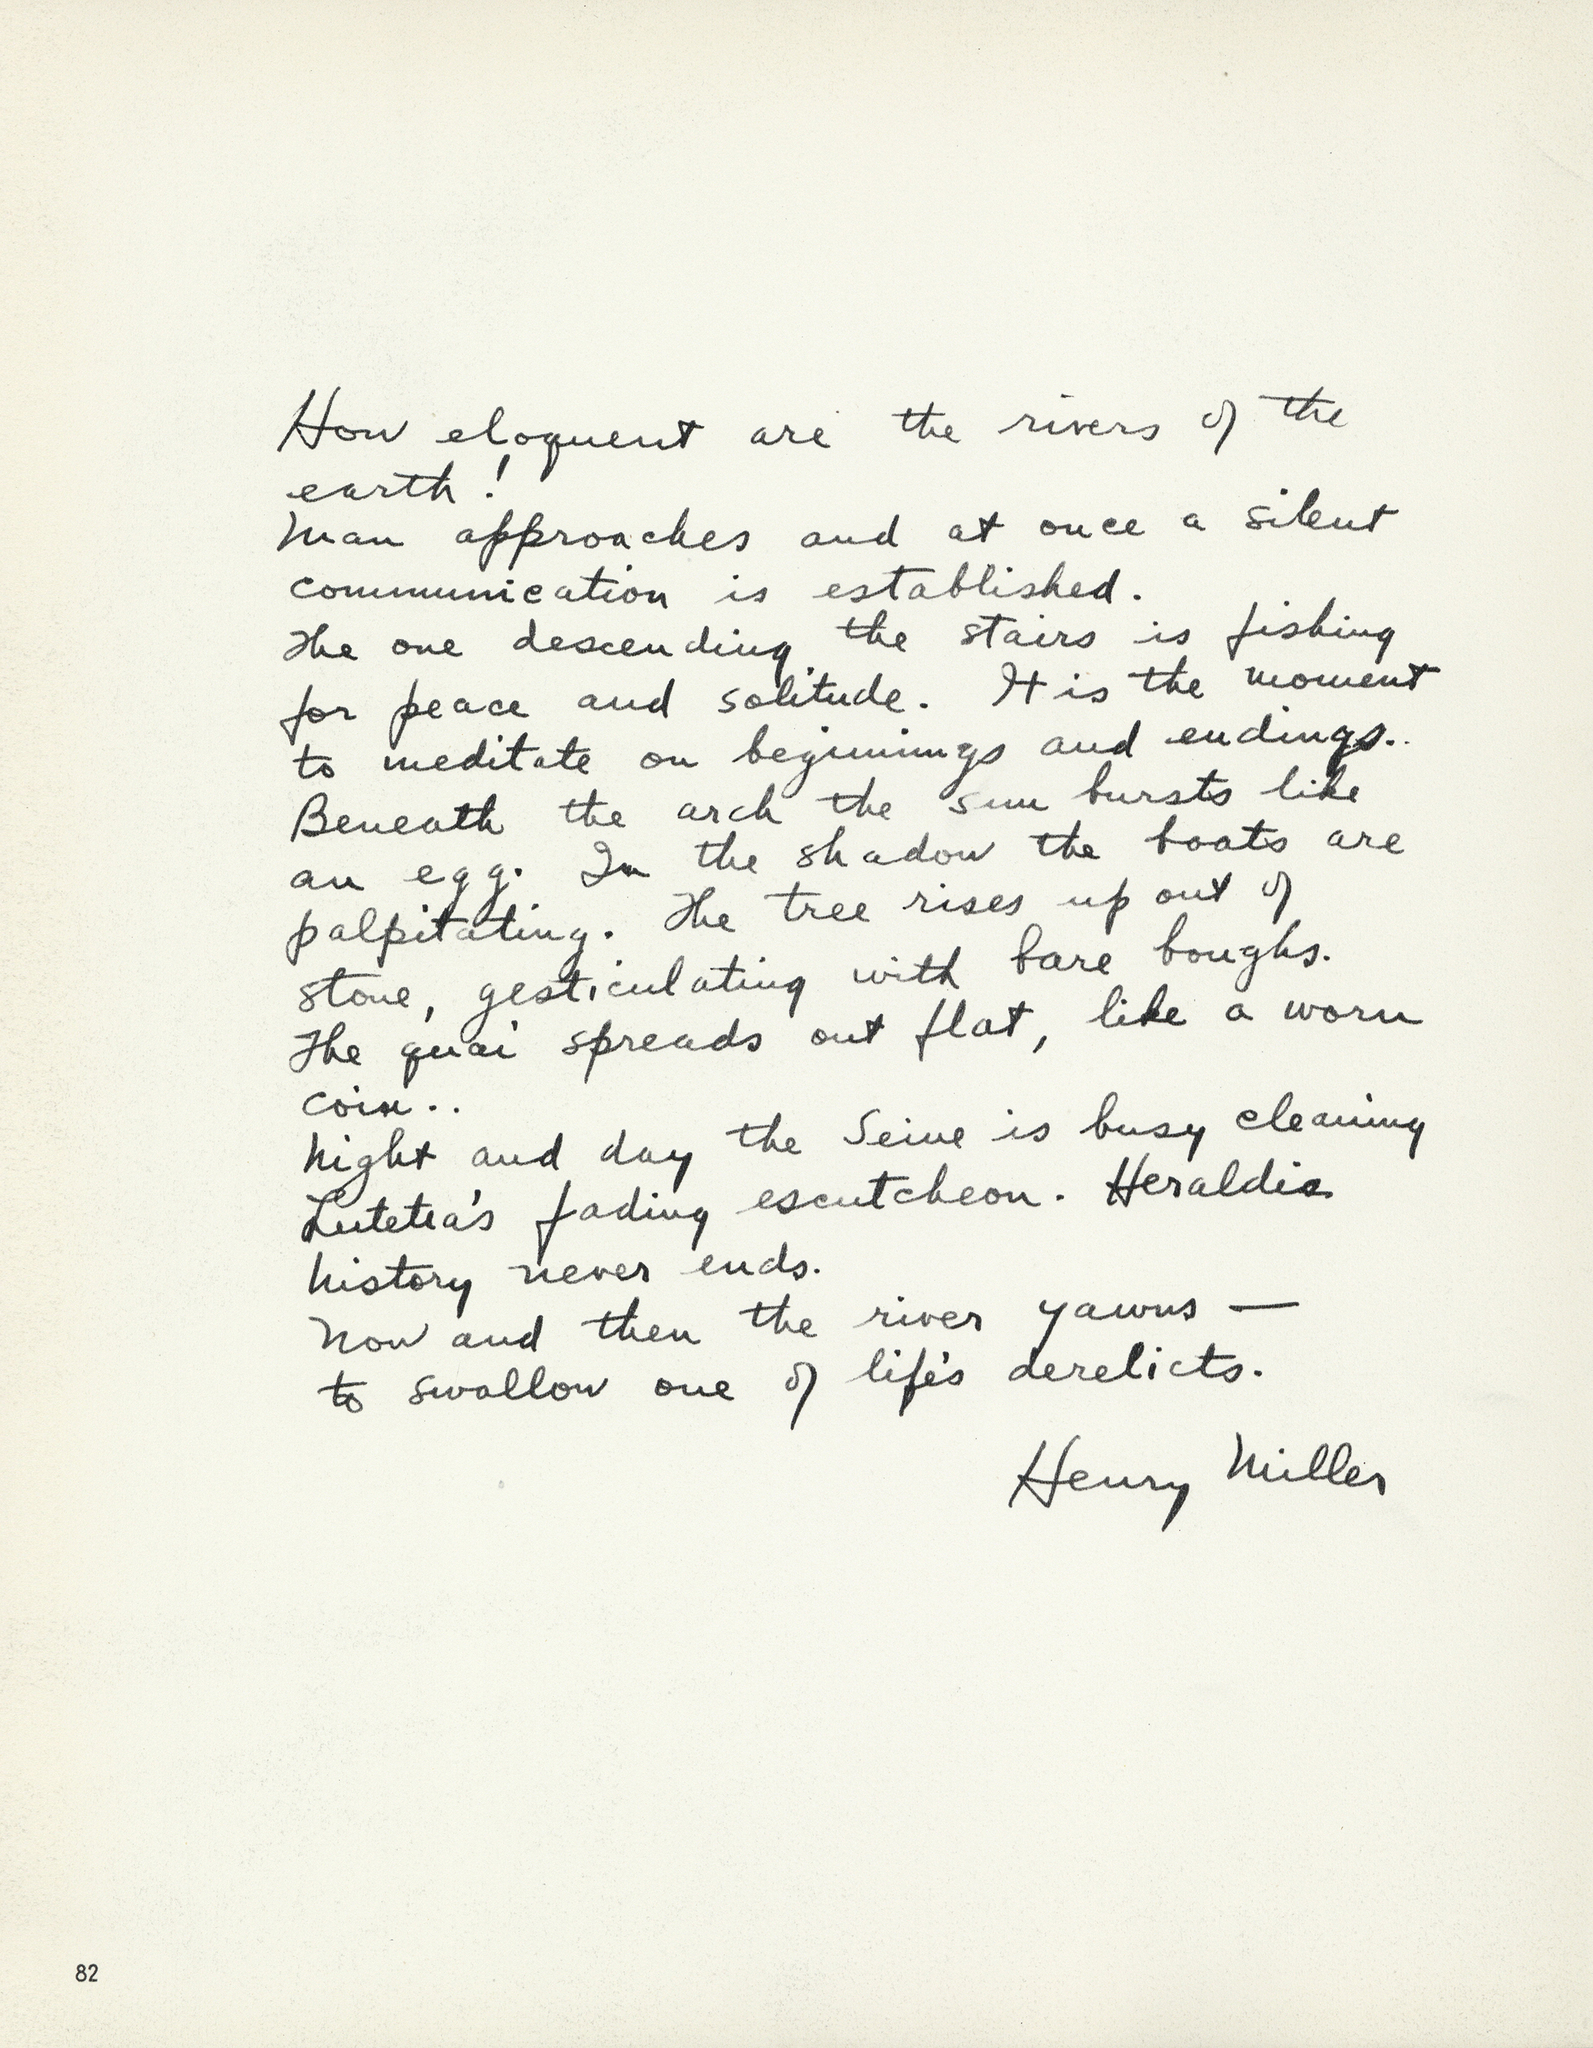 How eloquent are the rivers of the
earth!
Man approaches and at once a silent
communication is established.
The one descending the stairs is fishing
for peace and solitude. It is the moment
to meditate on beginnings and endings..
Beneath the arch the sun bursts like
an egg. In the shadow the boats are
palpitating. The tree rises up out of
stone, gesticulating with bare boughs.
The quai spreads out flat, like a worn
coin..
Night and day the Seine is busy cleaning
Lutetia's fading escutcheon. Heraldic
history never ends.
Now and then the river yawns —
to swallow one of life's derelicts.
Henry Miller
82